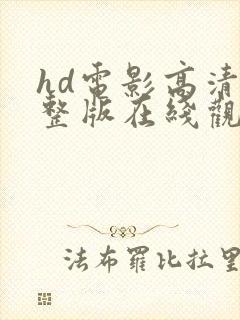 hd電影高清
整版在綫觀
法布羅比拉里